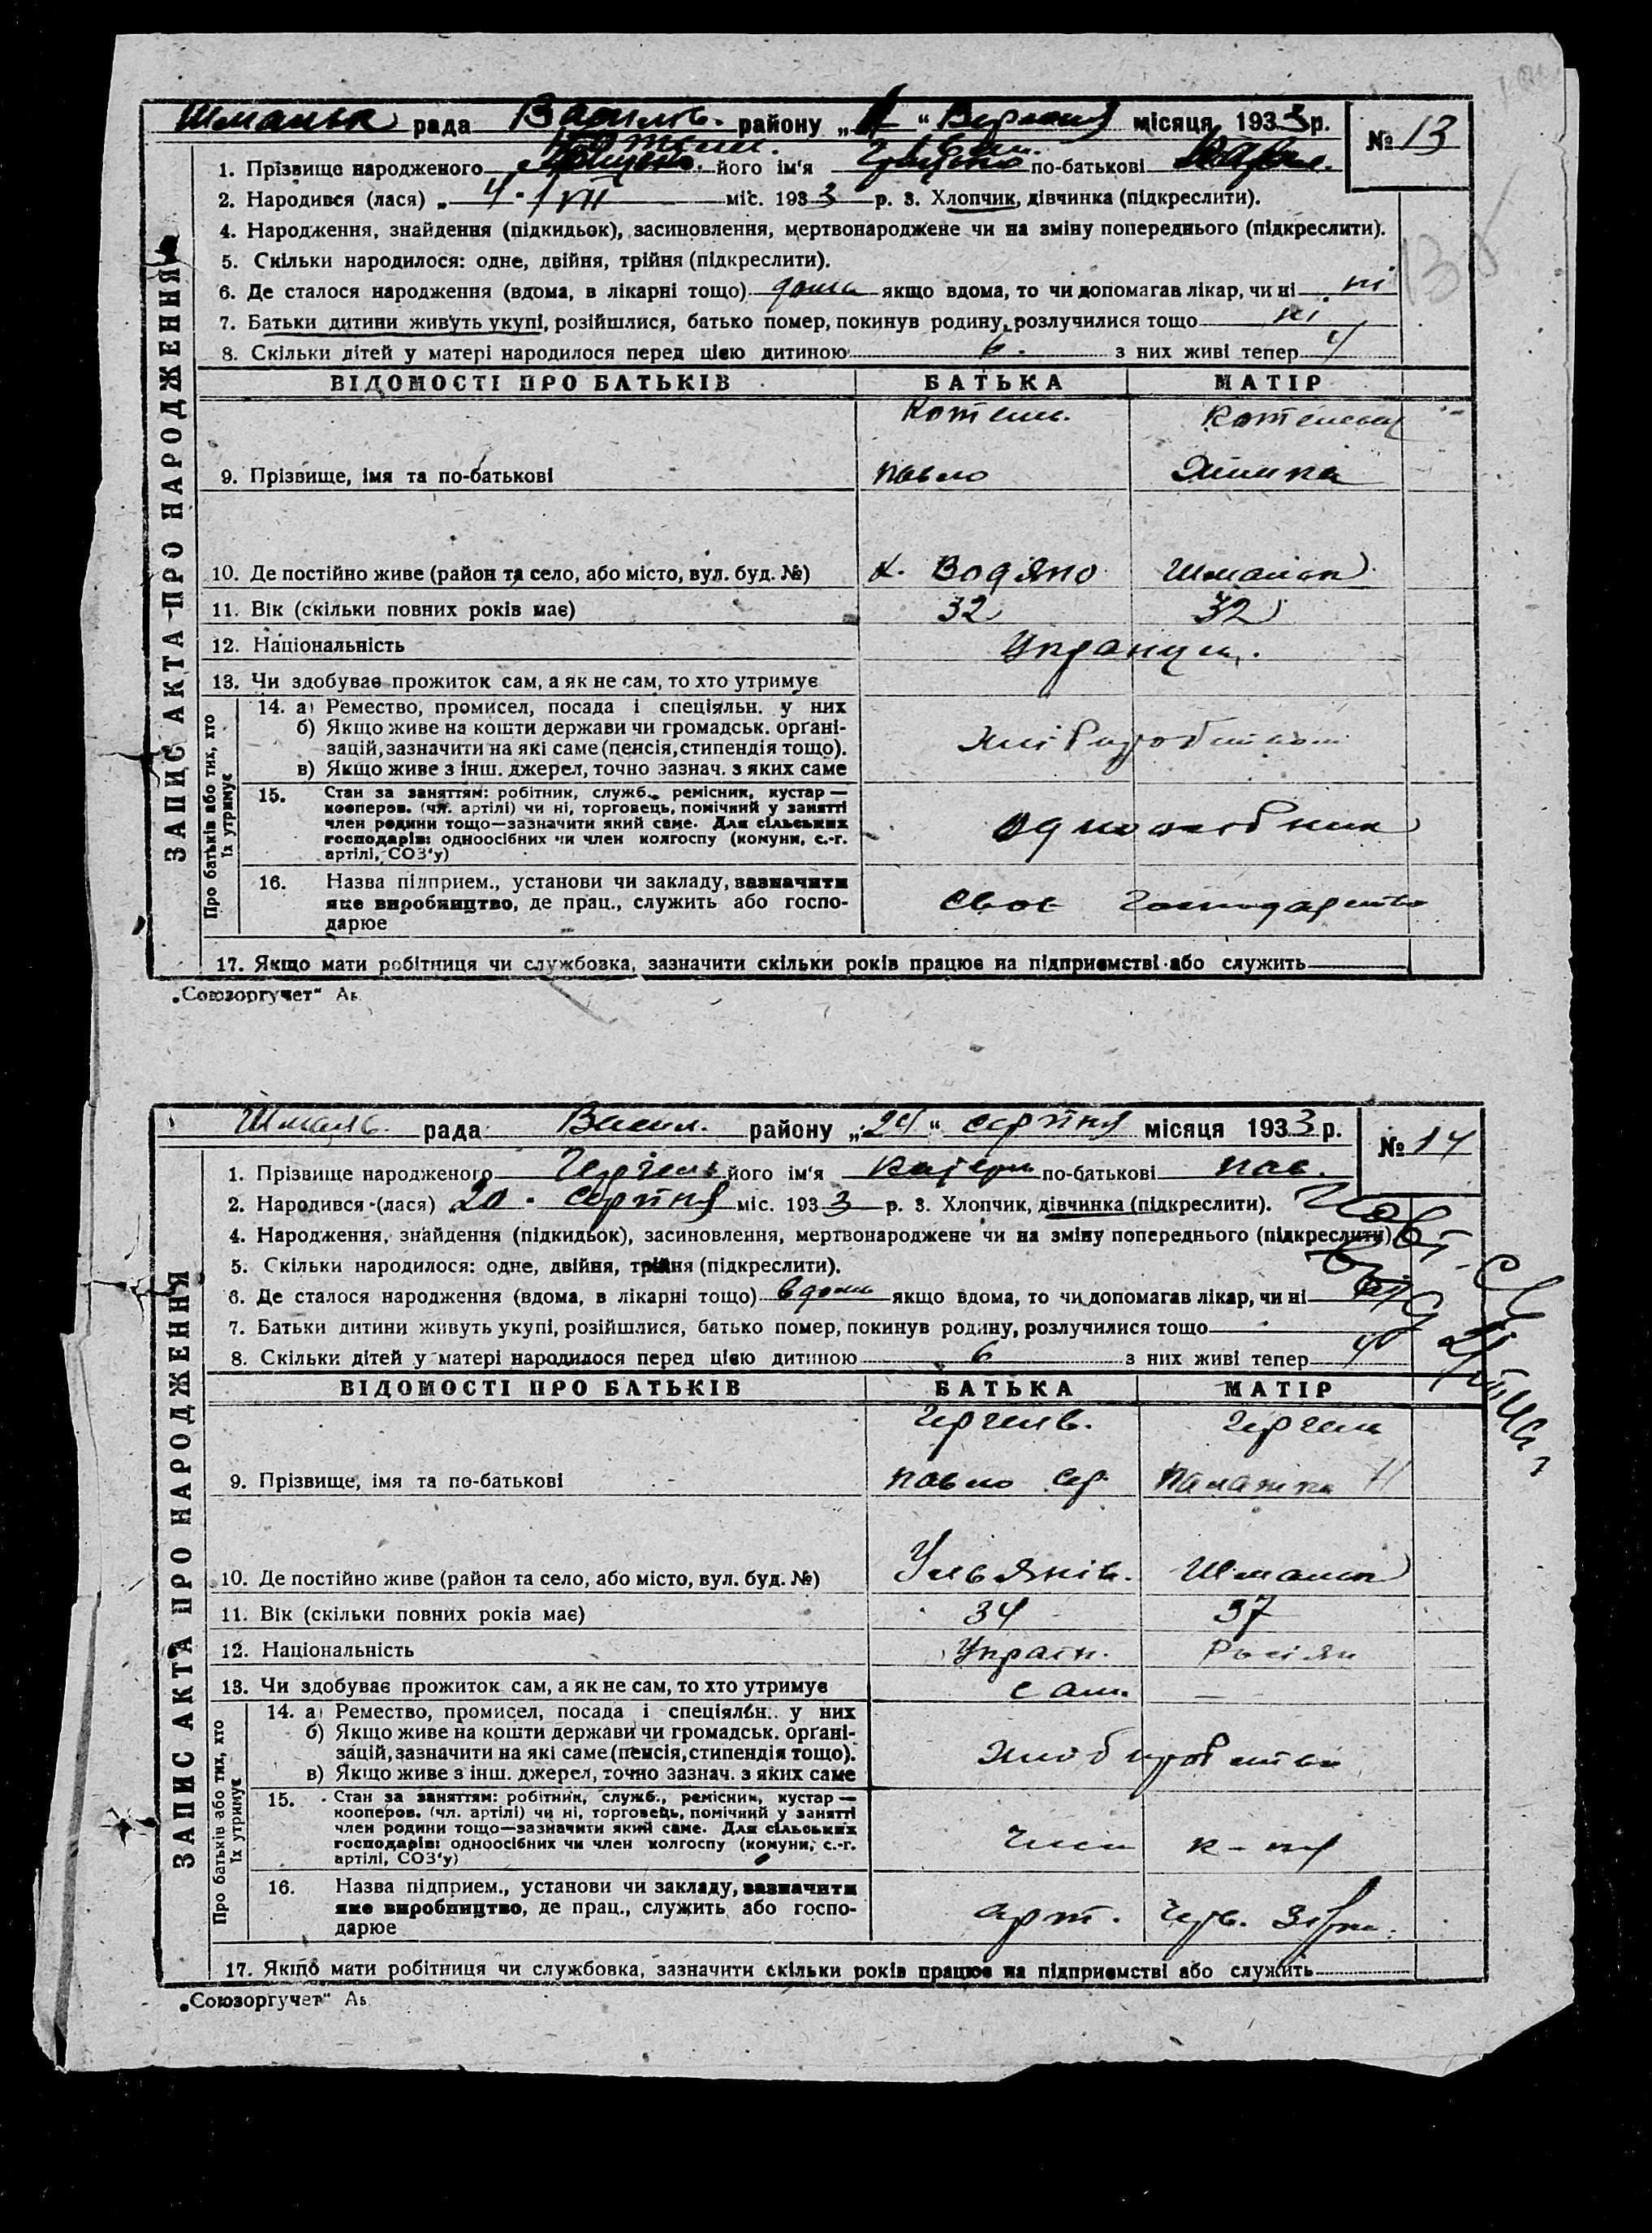 Шмальк рада Василів. району „ “ Вересня місяця 1933 р. № 13
Котелн.
1. Прізвище народженого його ім'я по-батькові
2. Народився (лася) „ 4 - VII міс. 1933 р. 3. Хлопчик, дівчинка (підкреслити).
4. Народження, знайдення (підкидьок), засиновлення, мертвонароджене чи на зміну попереднього (підкреслити).
5. Скільки народилося: одне, двійня, трійня (підкреслити).
6. Де сталося народження (вдома, в лікарні тощо) дома якщо вдома, то чи допомагав лікар, чи ні ні
7. Батьки дитини живуть укупі, розійшлися, батько помер, покинув родину, розлучилися тощо ні
8. Скільки дітей у матері народилося перед цією дитиною 6. з них живі тепер 4
ВІДОМОСТІ ПРО БАТЬКІВ БАТЬКА МАТІР
9. Прізвище, імя та по-батькові Павло
10. Де постійно живе (район та село, або місто, вул. буд. №) х. Водяно Шмальк
11. Вік (скільки повних років має) 32 32
12. Національність Українци.
13. Чи здобуває прожиток сам, а як не сам, то хто утримує
14. а) Ремество, промисел, посада і спеціяльн. у них
б) Якщо живе на кошти держави чи громадськ. орґані-
зацій, зазначити на які саме (пенсія, стипендія тощо).
в) Якщо живе з інш. джерел, точно зазнач. з яких саме
15. Стан за заняттям: робітник, служб., ремісник, кустар —
кооперов. (чл. артілі) чи ні, торговець, помічний у занятті
член родини тощо—зазначити який саме. Для сільських
господарів: одноосібних чи член колгоспу (комуни, с.-г.
артілі, СОЗ'у)
одноосібник
16. Назва підприєм., установи чи закладу, зазначити
яке виробництво, де прац., служить або госпо-
дарює
своє господарство
17. Якщо мати робітниця чи службовка, зазначити скільки років працює на підприємстві або служить
ЗАПИС АКТА ПРО НАРОДЖЕННЯ
Про батьків або тих, хто
їх утримує
„Союзоргучет“
Шмаль. рада Васил. району „24“ серпня місяця 1933 р. № 14
1. Прізвище народженого його ім'я Катерн по-батькові Пав.
2. Народився (лася) 20 - серпня міс. 1933 р. 3. Хлопчик, дівчинка (підкреслити).
4. Народження, знайдення (підкидьок), засиновлення, мертвонароджене чи на зміну попереднього (підкреслити).
5. Скільки народилося: одне, двійня, трійня (підкреслити).
6. Де сталося народження (вдома, в лікарні тощо) вдома якщо вдома, то чи допомагав лікар, чи ні
7. Батьки дитини живуть укупі, розійшлися, батько помер, покинув родину, розлучилися тощо
8. Скільки дітей у матері народилося перед цією дитиною 6 з них живі тепер
ВІДОМОСТІ ПРО БАТЬКІВ БАТЬКА МАТІР
9. Прізвище, імя та по-батькові Павло Сер.
10. Де постійно живе (район та село, або місто, вул. буд. №) Ульянів. Шмальк
11. Вік (скільки повних років має) 34 37
12. Національність Україн. Росіян
13. Чи здобуває прожиток сам, а як не сам, то хто утримує сам. —
14. а) Ремество, промисел, посада і спеціялбн. у них
б) Якщо живе на кошти держави чи громадськ. орґані-
зацій, зазначити на які саме (пенсія, стипендія тощо).
в) Якщо живе з інш. джерел, точно зазнач. з яких саме
хліборобство
15. Стан за заняттям: робітник, служб., ремісник, кустар —
кооперов. (чл. артілі) чи ні, торговець, помічний у занятті
член родини тощо—зазначити який саме. Для сільських
господарів: одноосібних чи член колгоспу (комуни, с.-г.
артілі, СОЗ'у)
член к-пу
16. Назва підприєм., установи чи закладу, зазначити
яке виробництво, де прац., служить або госпо-
дарює
арт. Черв. Зірка.
17. Якщо мати робітниця чи службовка, зазначити скільки років працює на підприємстві або служить
ЗАПИС АКТА ПРО НАРОДЖЕННЯ
Про батьків або тих, хто
їх утримує
„Союзоргучет“